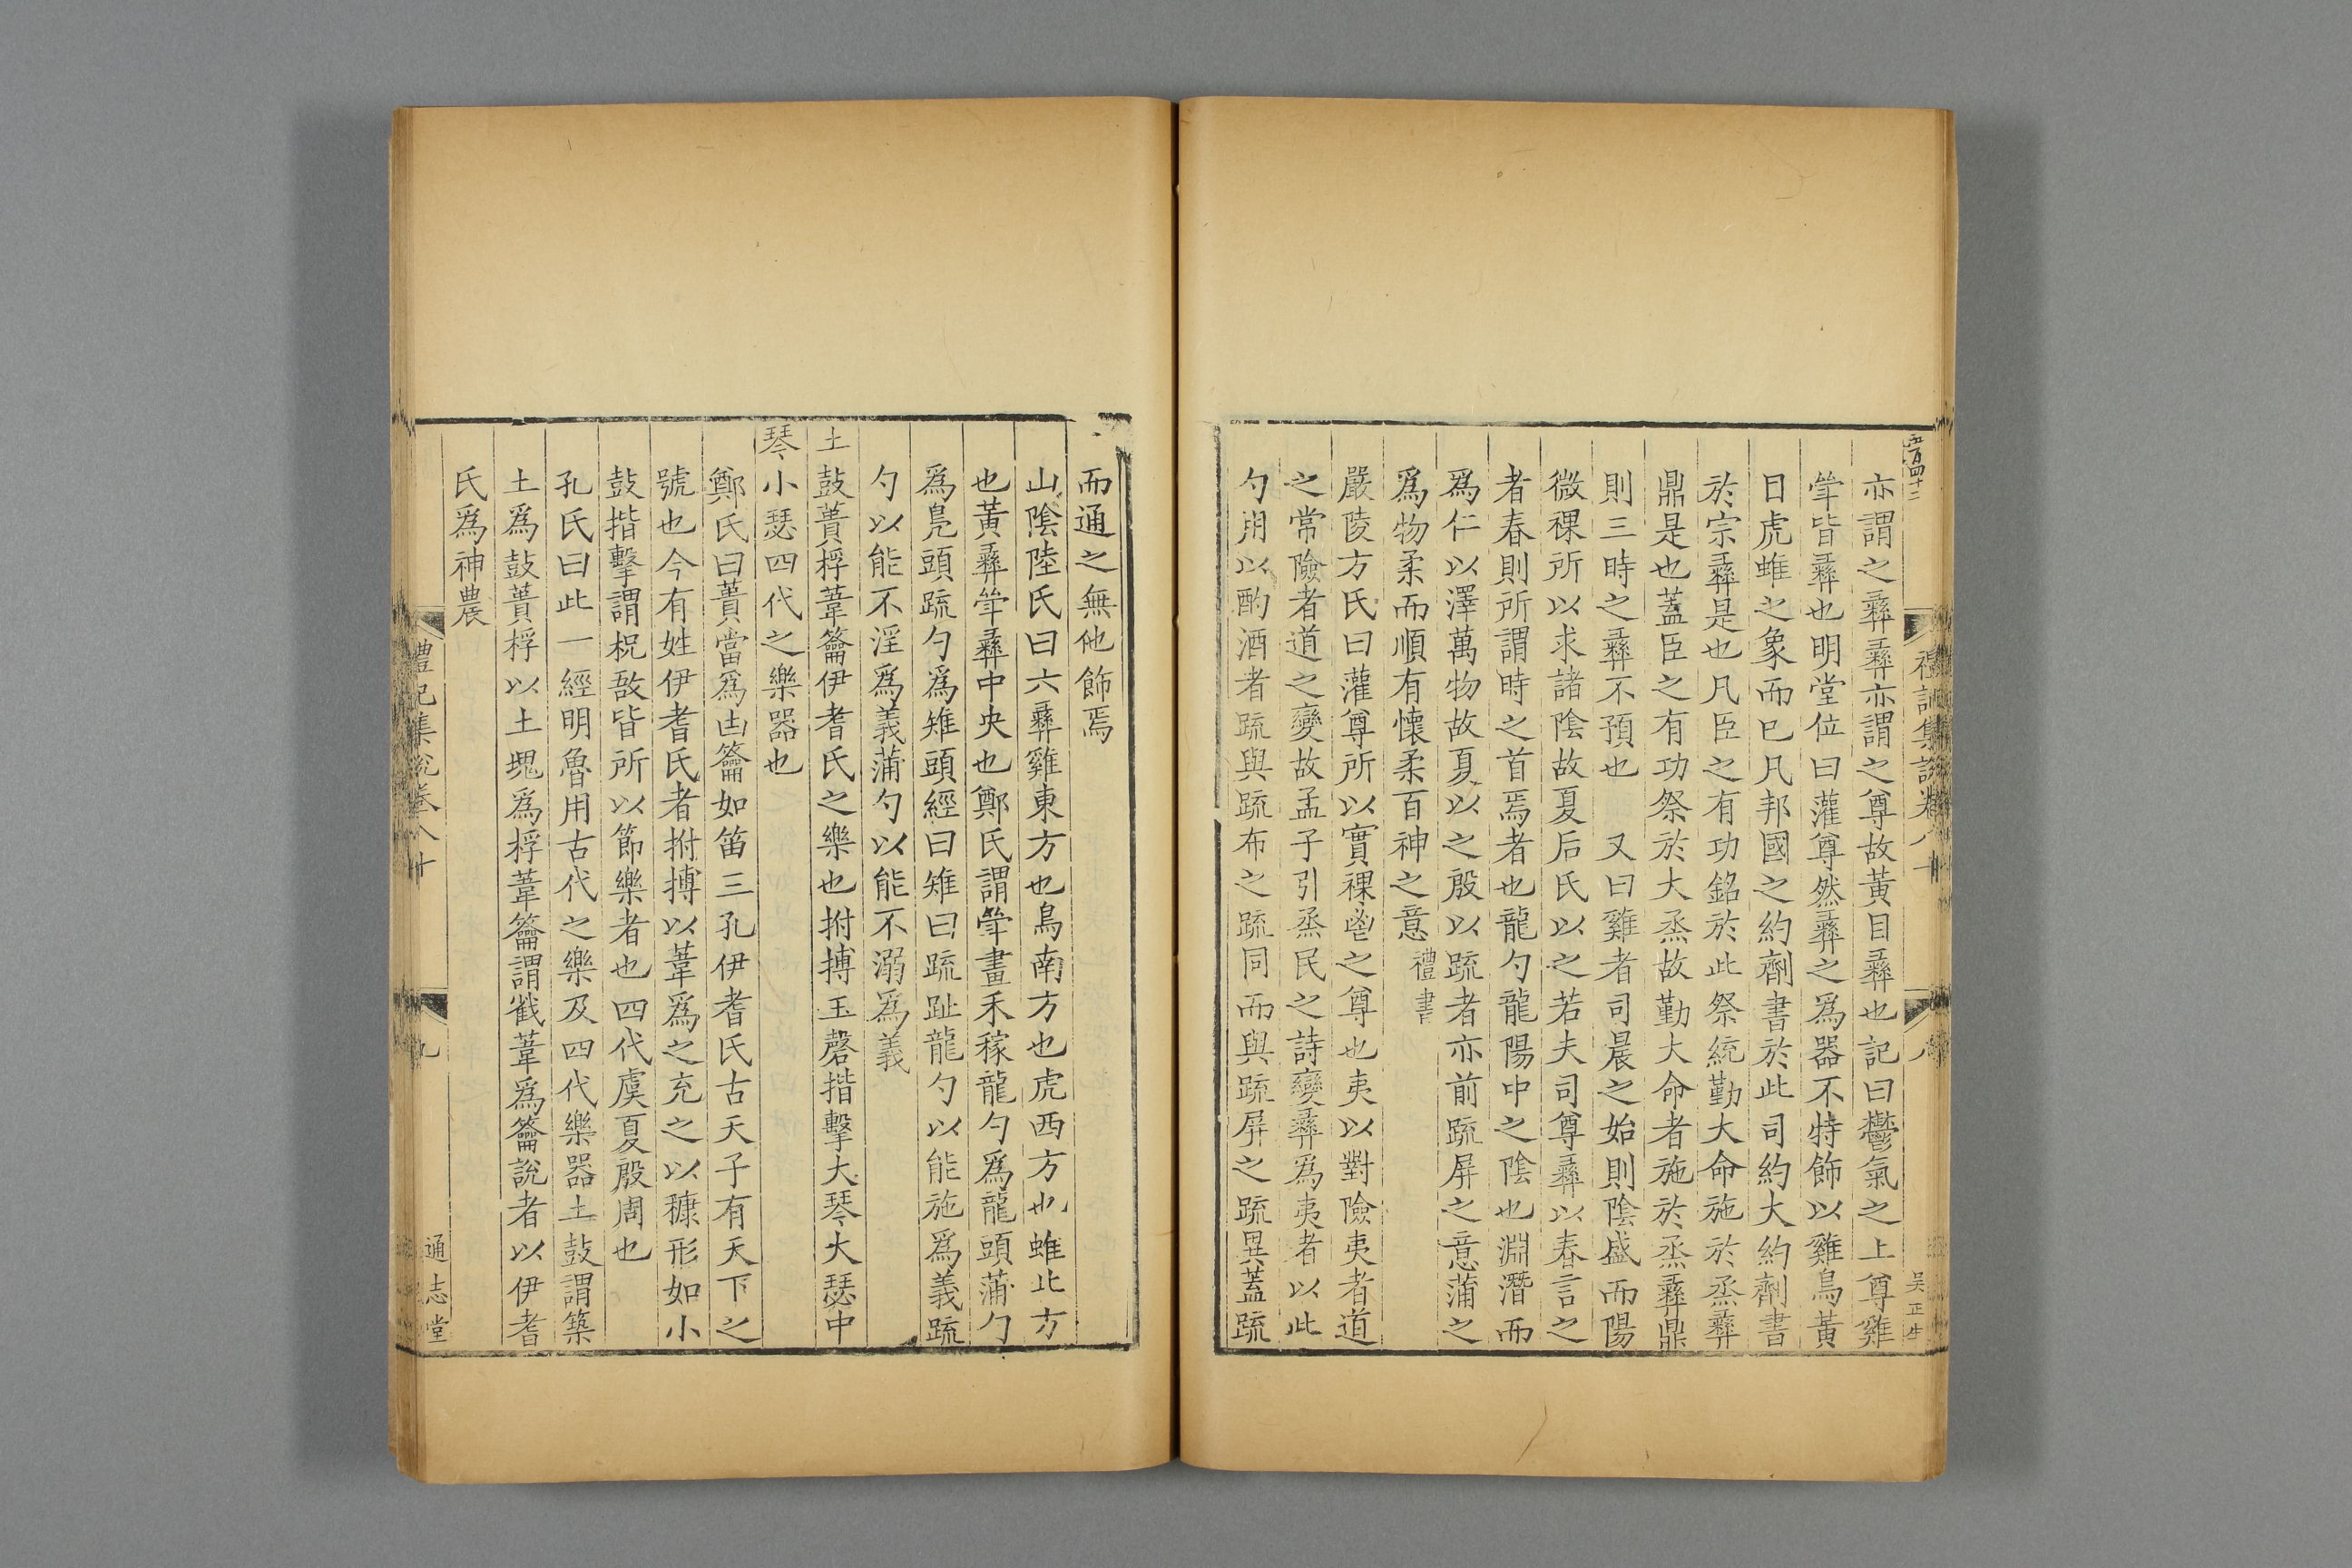 亦謂之彞彞亦謂之尊故黃目彞也記曰鬱氣之上尊雞
斚皆彞也明堂位曰灌尊然彞之爲器不特飾以雞鳥黃
目虎蜼之象而已凡邦國之約劑書於此司約大約劑書
於宗彞是也凡臣之有功銘於此祭統勤大命施於烝彞
鼎是也蓋臣之有功祭於大烝故勤大命者施於烝彞鼎
則三時之彞不預也 又曰雞者司晨之始則陰盛而陽
微祼所以求諸陰故夏后氏以之若夫司尊彞以春言之
者春則所謂時之首焉者也龍勺龍陽中之陰也淵潛而
爲仁以澤萬物故夏以之殷以疏者亦前疏屏之意蒲之
爲物柔而順有懷柔百神之意禮書
嚴陵方氏曰灌尊所以實祼鬯之尊也夷以對險夷者道
之常險者道之變故孟子引烝民之詩變彞爲夷者以此
勺用以酌酒者疏與疏布之疏同而與疏屏之疏異蓋疏
禮記集說卷八十
八
吴正生
而通之無他飾焉
山陰陸氏曰六彞雞東方也鳥南方也虎西方也蜼北方
也黃彞斚彞中央也鄭氏謂斚畫禾稼龍勺爲龍頭蒲勺
爲鳧頭疏勺爲雉頭經曰雉曰疏趾龍勺以能施爲義疏
勺以能不淫爲義蒲勺以能不溺爲義
土鼓蕢桴葦籥伊耆氏之樂也拊搏玉磬揩擊大琴大瑟中
琴小瑟四代之樂器也
鄭氏曰蕢當爲凷籥如笛三孔伊耆氏古天子有天下之
號也今有姓伊耆氏者拊搏以葦爲之充之以穅形如小
鼓揩擊謂柷敔皆所以節樂者也四代虞夏殷周也
孔氏曰此一經明魯用古代之樂及四代樂器土鼓謂築
土爲鼓蕢桴以土塊爲桴葦籥謂截葦爲籥說者以伊耆
氏爲神農
禮記集說卷八十
九
通志堂